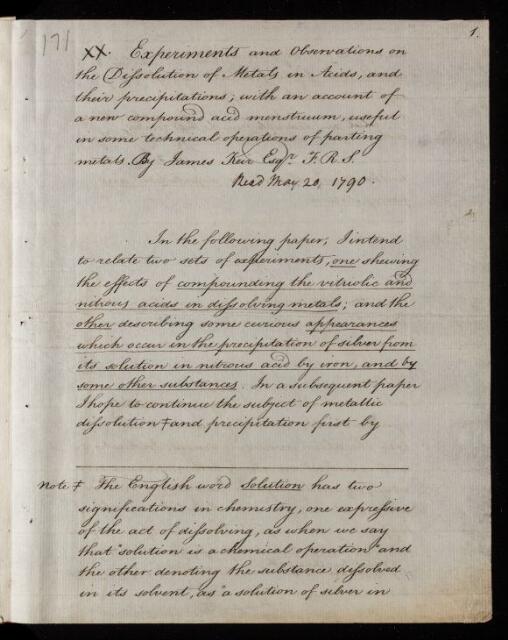 171
1.
XX. Experiments and Observations on
the Dissolution of Metals in Acids, and
their precipitations; with an account of
a new compound acid menstruum, useful
in some technical operations of parting
metals. By James Keir Esqr. F.R.S.
Read May 20, 1790.
In the following paper, I intend
to relate two sets of experiments, one shewing
the effects of compounding the vitriolic and
nitrous acids in dissolving metals; and the
other describing some curious appearances
which occur in the precipitation of silver from
its solution in nitrous acid by iron, and by
some other substances. In a subsequent paper
I hope to continue the subject of metallic
dissolution ‡ and precipitation first by
Note ‡ The English word Solution has two
significations in chemistry, one expressive
of the act of dissolving, as when we say
that "solution is a chemical operation" and
the other denoting the substance dessolved
in its solvent, as "a solution of silver in